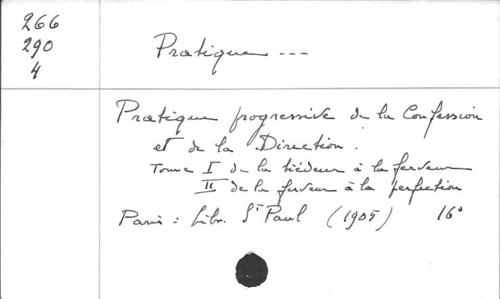 266
290
4
Pratique ---
Pratique progressive de la Confession
et de la Direction.
Tome I de la tiédeur à la ferveur
II de la ferveur à la perfection
Paris : Libr. St Paul (1905) 16°